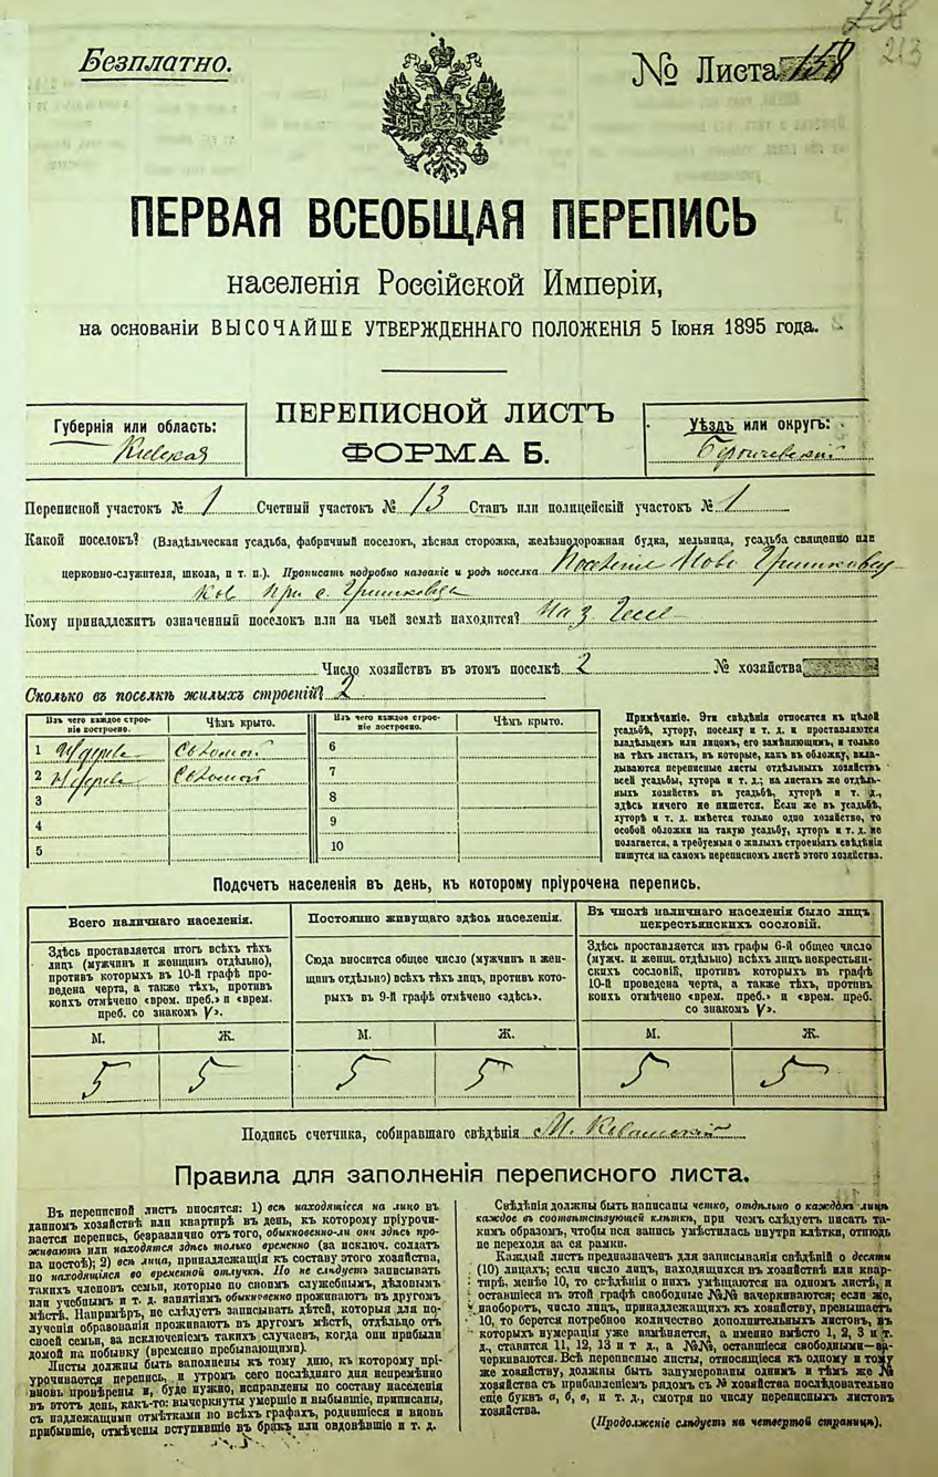 238
213
Безплатно.
№ Листа 158
ПЕРВАЯ ВСЕОБЩАЯ ПЕРЕПИСЬ
населенія Россійской Имперіи,
на основаніи ВЫСОЧАЙШЕ УТВЕРЖДЕННАГО ПОЛОЖЕНІЯ 5 Іюня 1895 года.
ПЕРЕПИСНОЙ ЛИСТЪ
ФОРМА Б.
Губернія или область:
Кіевская
Уѣздъ или округъ:
Бердичевскій
Переписной участокъ № 1 Счетный участокъ № 13 Станъ или полицейскій участокъ № 1
Какой поселокъ? (Владѣльческая усадьба, фабричный поселокъ, лѣсная сторожка, желѣзнодорожная будка, мельница, усадьба священно или
церковно-служителя, школа, и т. п.). Прописать подробно названіе и родъ поселка Поселеніе Ново Гришковец
ков при с. Гришковца
Кому принадлежитъ означенный поселокъ или на чьей землѣ находится? На з.
Число хозяйствъ въ этомъ поселкѣ 2 № хозяйства
Сколько въ поселкѣ жилыхъ строеній? 2
Изъ чего каждое строеніе построено. Чѣмъ крыто. Изъ чего каждое строеніе построено. Чѣмъ крыто.
1 Из дерева Соломой 6
2 Из дерева Соломой 7
3 8
4 9
5 10
Примѣчаніе. Эти свѣдѣнія относятся къ цѣлой
усадьбѣ, хутору, поселку и т. д. и проставляются
владѣльцемъ или лицомъ, его замѣняющимъ, и только
на тѣхъ листахъ, въ которые, какъ въ обложку, вкла-
дываются переписные листы отдѣльныхъ хозяйствъ
всей усадьбы, хутора и т. д.; на листахъ же отдѣль-
ныхъ хозяйствъ въ усадьбѣ, хуторѣ и т. д.,
здѣсь ничего не пишется. Если же въ усадьбѣ,
хуторѣ и т. д. имѣется только одно хозяйство, то
особой обложки на такую усадьбу, хуторъ и т. д. не
полагается, а требуемыя о жилыхъ строеніяхъ свѣдѣнія
пишутся на самомъ переписномъ листѣ этого хозяйства.
Подсчетъ населенія въ день, къ которому пріурочена перепись.
Всего наличнаго населенія.
Здѣсь проставляется итогъ всѣхъ тѣхъ
лицъ (мужчинъ и женщинъ отдѣльно),
противъ которыхъ въ 10-й графѣ про-
ведена черта, а также тѣхъ, противъ
коихъ отмѣчено «врем. преб.» и «врем.
преб. со знакомъ V».
Постоянно живущаго здѣсь населенія.
Сюда вносится общее число (мужчинъ и жен-
щинъ отдѣльно) всѣхъ тѣхъ лицъ, противъ кото-
рыхъ въ 9-й графѣ отмѣчено «здѣсь».
Въ числѣ наличнаго населенія было лицъ
некрестьянскихъ сословій.
Здѣсь проставляется изъ графы 6-й общее число
(мужч. и женщ. отдѣльно) всѣхъ лицъ некрестьян-
скихъ сословій, противъ которыхъ въ графѣ
10-й проведена черта, а также тѣхъ, противъ
коихъ отмѣчено «врем. преб.» и «врем. преб.
со знакомъ V».
М. Ж. М. Ж. М. Ж.
5 5 5 5 5 5
Подпись счетчика, собиравшаго свѣдѣнія М.
Правила для заполненія переписного листа.
Въ переписной листъ вносятся: 1) всѣ находящіеся на лицо въ
данномъ хозяйствѣ или квартирѣ въ день, къ которому пріурочи-
вается перепись, безразлично отъ того, обыкновенно-ли они здѣсь про-
живаютъ или находятся здѣсь только временно (за исключ. солдатъ
на постоѣ); 2) всѣ лица, принадлежащія къ составу этого хозяйства,
но находящіяся во временной отлучкѣ. Но не слѣдуетъ записывать
такихъ членовъ семьи, которые по своимъ служебнымъ, дѣловымъ
или учебнымъ и т. д. занятіямъ обыкновенно проживаютъ въ другомъ
мѣстѣ. Напримѣръ, не слѣдуетъ записывать дѣтей, которыя для по-
лученія образованія проживаютъ въ другомъ мѣстѣ, отдѣльно отъ
своей семьи, за исключеніемъ такихъ случаевъ, когда они прибыли
домой на побывку (временно пребывающими).
Листы должны быть заполнены къ тому дню, къ которому прі-
урочивается перепись, и утромъ сего послѣдняго дня непремѣнно
вновь провѣрены и, буде нужно, исправлены по составу населенія
въ этотъ день, какъ-то: вычеркнуты умершіе и выбывшіе, приписаны,
съ надлежащими отмѣтками во всѣхъ графахъ, родившіеся и вновь
прибывшіе, отмѣчены вступившіе въ бракъ или овдовѣвшіе и т. д.
Свѣдѣнія должны быть написаны четко, отдѣльно о каждомъ лицѣ
каждое въ соотвѣтствующей клѣткѣ, при чемъ слѣдуетъ писать та-
кимъ образомъ, чтобы вся запись умѣстилась внутри клѣтки, отнюдь
не переходя за ея рамки.
Каждый листъ предназначенъ для записыванія свѣдѣній о десяти
(10) лицахъ; если число лицъ, находящихся въ хозяйствѣ или квар-
тирѣ, менѣе 10, то свѣдѣнія о нихъ умѣщаются на одномъ листѣ, и
оставшіеся въ этой графѣ свободные №№ вычеркиваются; если же,
наоборотъ, число лицъ, принадлежащихъ къ хозяйству, превышаетъ
10, то берется потребное количество дополнительныхъ листовъ, въ
которыхъ нумерація уже намѣняется, а именно вмѣсто 1, 2, 3 и т.
д., ставится 11, 12, 13 и т. д., а №№, оставшіеся свободными—вы-
черкиваются. Всѣ переписные листы, относящіеся къ одному и тому
же хозяйству, должны быть занумерованы однимъ и тѣмъ же №
хозяйства съ прибавленіемъ рядомъ съ № хозяйства послѣдовательно
еще буквъ а, б, в, и т. д., смотря по числу переписныхъ листовъ
хозяйства.
(Продолженіе слѣдуетъ на четвертой страницѣ).